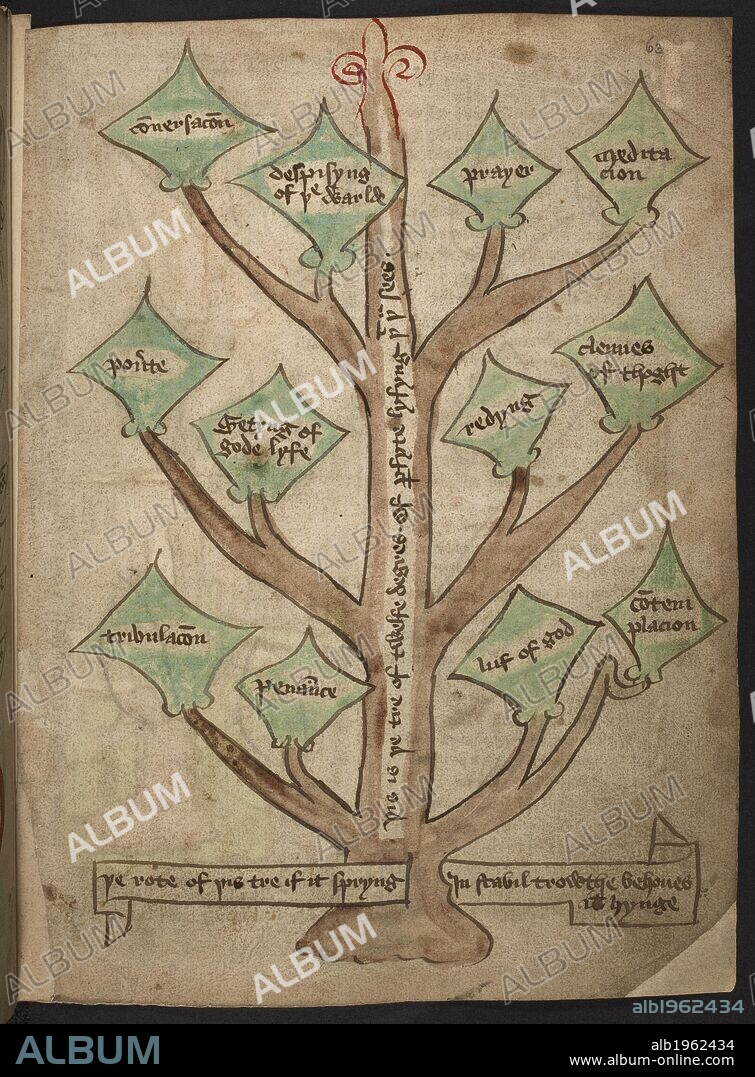 63
cōuersacōn
despisyng
of þe warlde
prayer
medita
cion
pou'te
Getyng of
gode lyfe
redyng
clennes
of thoght
tribulacōn
penāce
luf of god
cōtem
placion
þis is þe tre of twelfe degres of pfyte lyfyng þt þu sees.
þe rote of þis tre if it spryng
In stabil trowthe behoues
it hynge
alb1962434
ALBUM
alb1962434
www.album-online.com